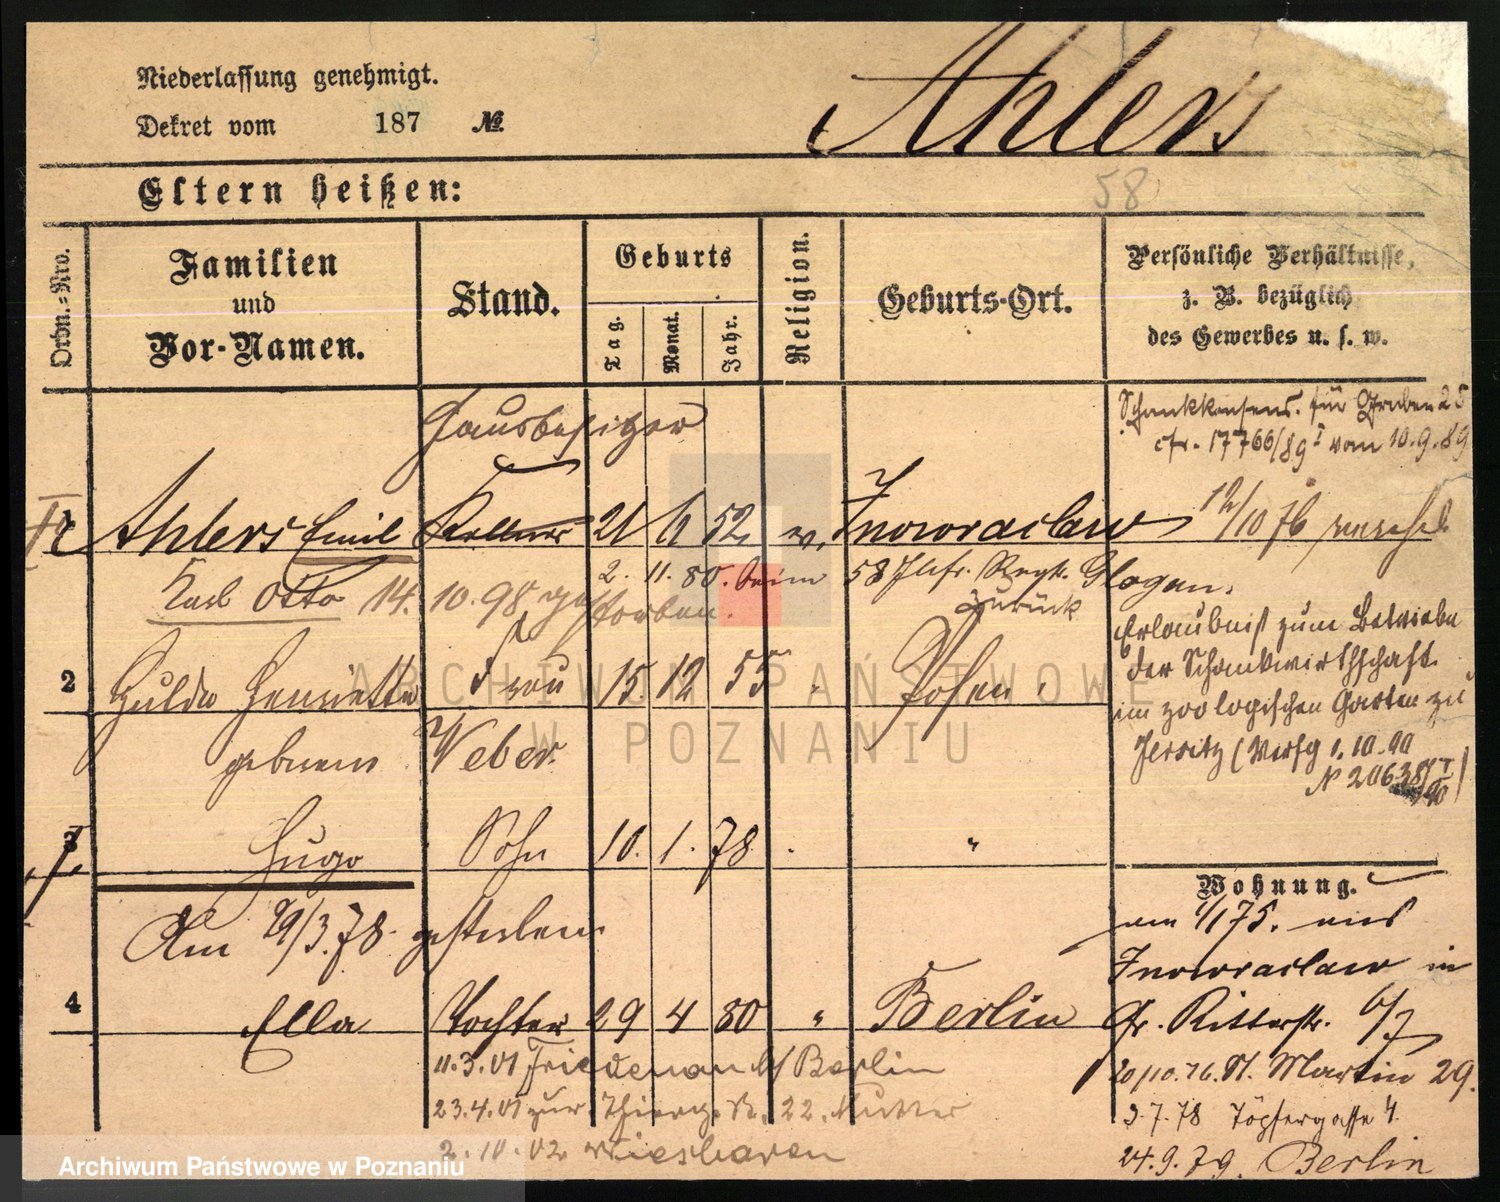 Niederlassung genehmigt.
Dekret vom 187 №
Ahlers
Eltern heißen:
58
Ordn.-Nro.
Familien und Vor-Namen.
Stand.
Geburts
Tag.
Monat.
Jahr.
Religion.
Geburts-Ort.
Persönliche Verhältnisse, z. B. bezüglich des Gewerbes u. s. w.
Hausbesitzer
Schankkonsens. für Graben 25
cfr. 17766/89 I vom 10.9.89
1 Ahlers Emil Kellner 21 6 52 ev. Inowraclaw 12/10 76
Karl Otto 14. 10. 98 gestorben.
2. 11. 80. beim 58 Inf. Regt. Glogau.
zurück
Erlaubniß zum Betriebe
der Schankwirthschaft
im zoologischen Garten zu
Jersitz (Verfg 1.10.90
2 Hulda Henriette Frau 15. 12 55 " Posen
geborene Weber
3 Hugo Sohn 10. 1. 78 "
Am 29/3.78. gestorben.
4 Ella Tochter 29 4 80 " Berlin
11.3.01 Friedenau b/ Berlin
23.4.01 zur Mutter
2.10.02 Wiesbaden
Wohnung.
am 1/1 75. aus
Inowraclaw in
Gr. Ritterstr. 6/7
20/10.76. St. Martin 29.
3.7.78 Töpfergasse 4.
24.9.79. Berlin
ARCHIWUM PAŃSTWOWE
W POZNANIU
Archiwum Państwowe w Poznaniu